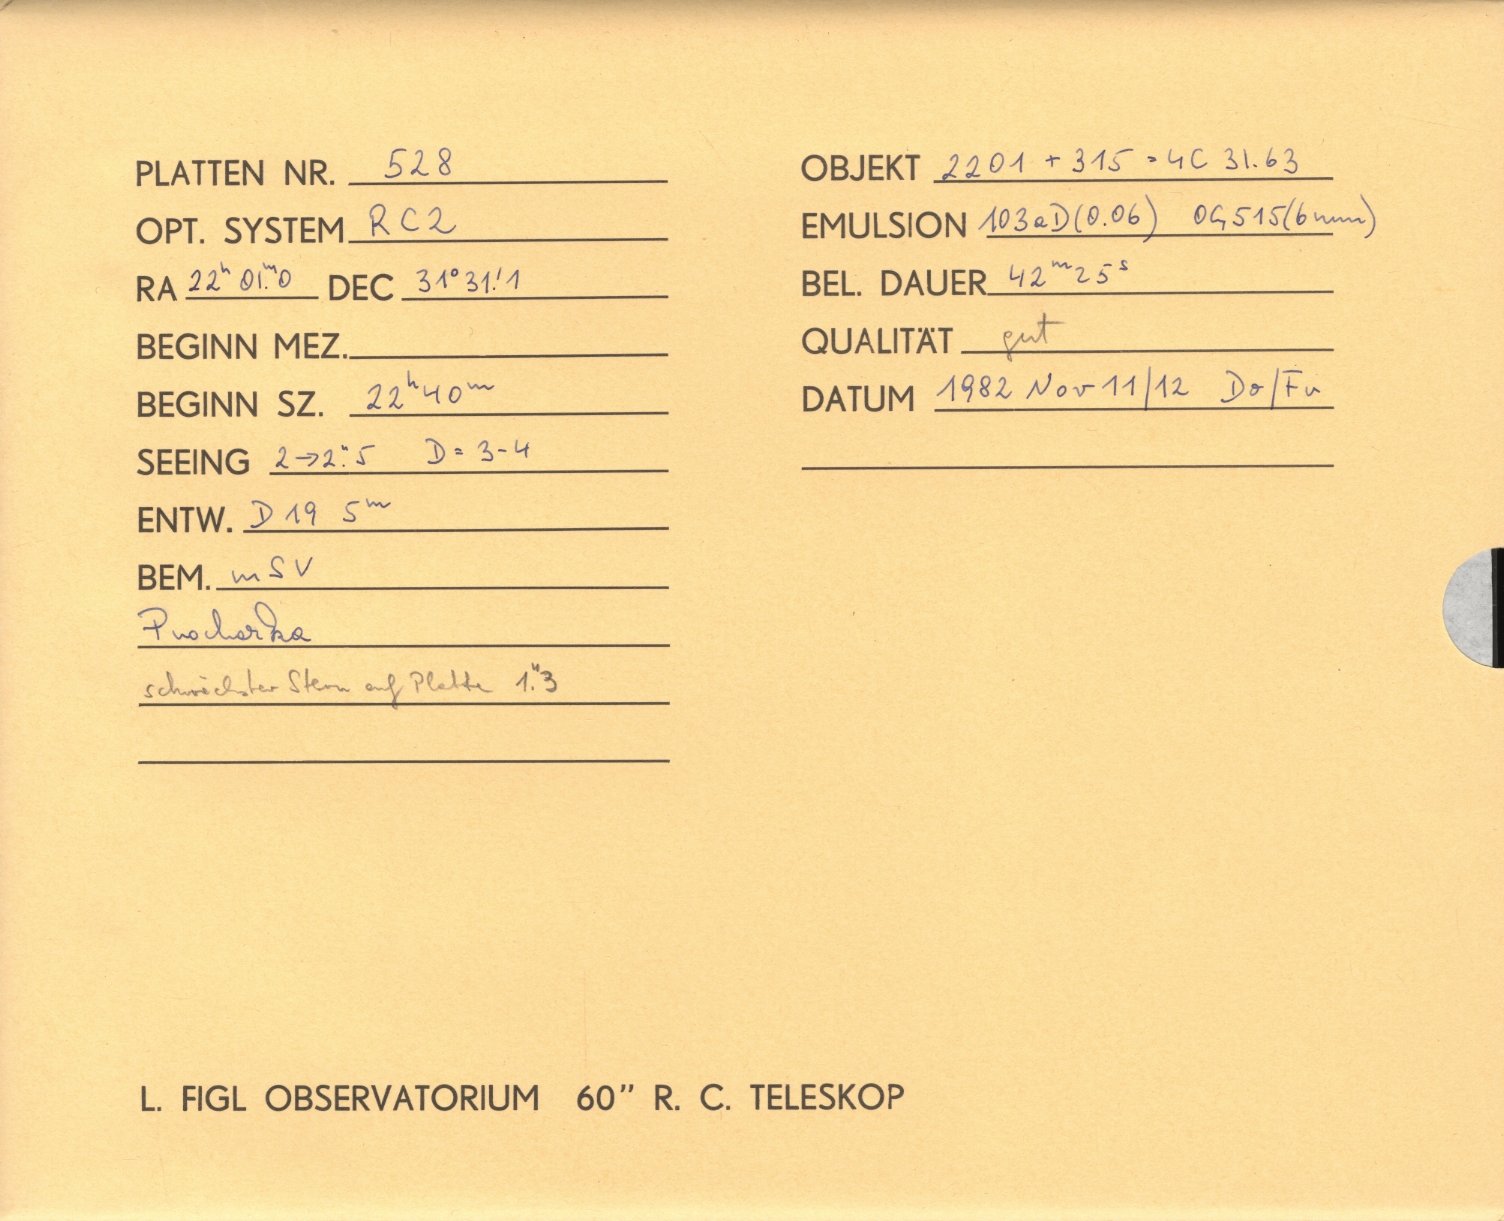 PLATTEN NR. 528
OPT. SYSTEM RC2
RA 22ʰ 01.ᵐ0 DEC 31° 31.'1
BEGINN MEZ.
BEGINN SZ. 22ʰ40ᵐ
SEEING 2→2."5 D = 3-4
ENTW. D 19 5ᵐ
BEM. mSV
schwächster Stern auf Platte 1."3
OBJEKT 2201 + 315 = 4C 31.63
EMULSION 103aD(0.06) OG515(6mm)
BEL. DAUER 42ᵐ25ˢ
QUALITÄT gut
DATUM 1982 Nov 11/12 Do/Fr
L. FIGL OBSERVATORIUM 60" R. C. TELESKOP